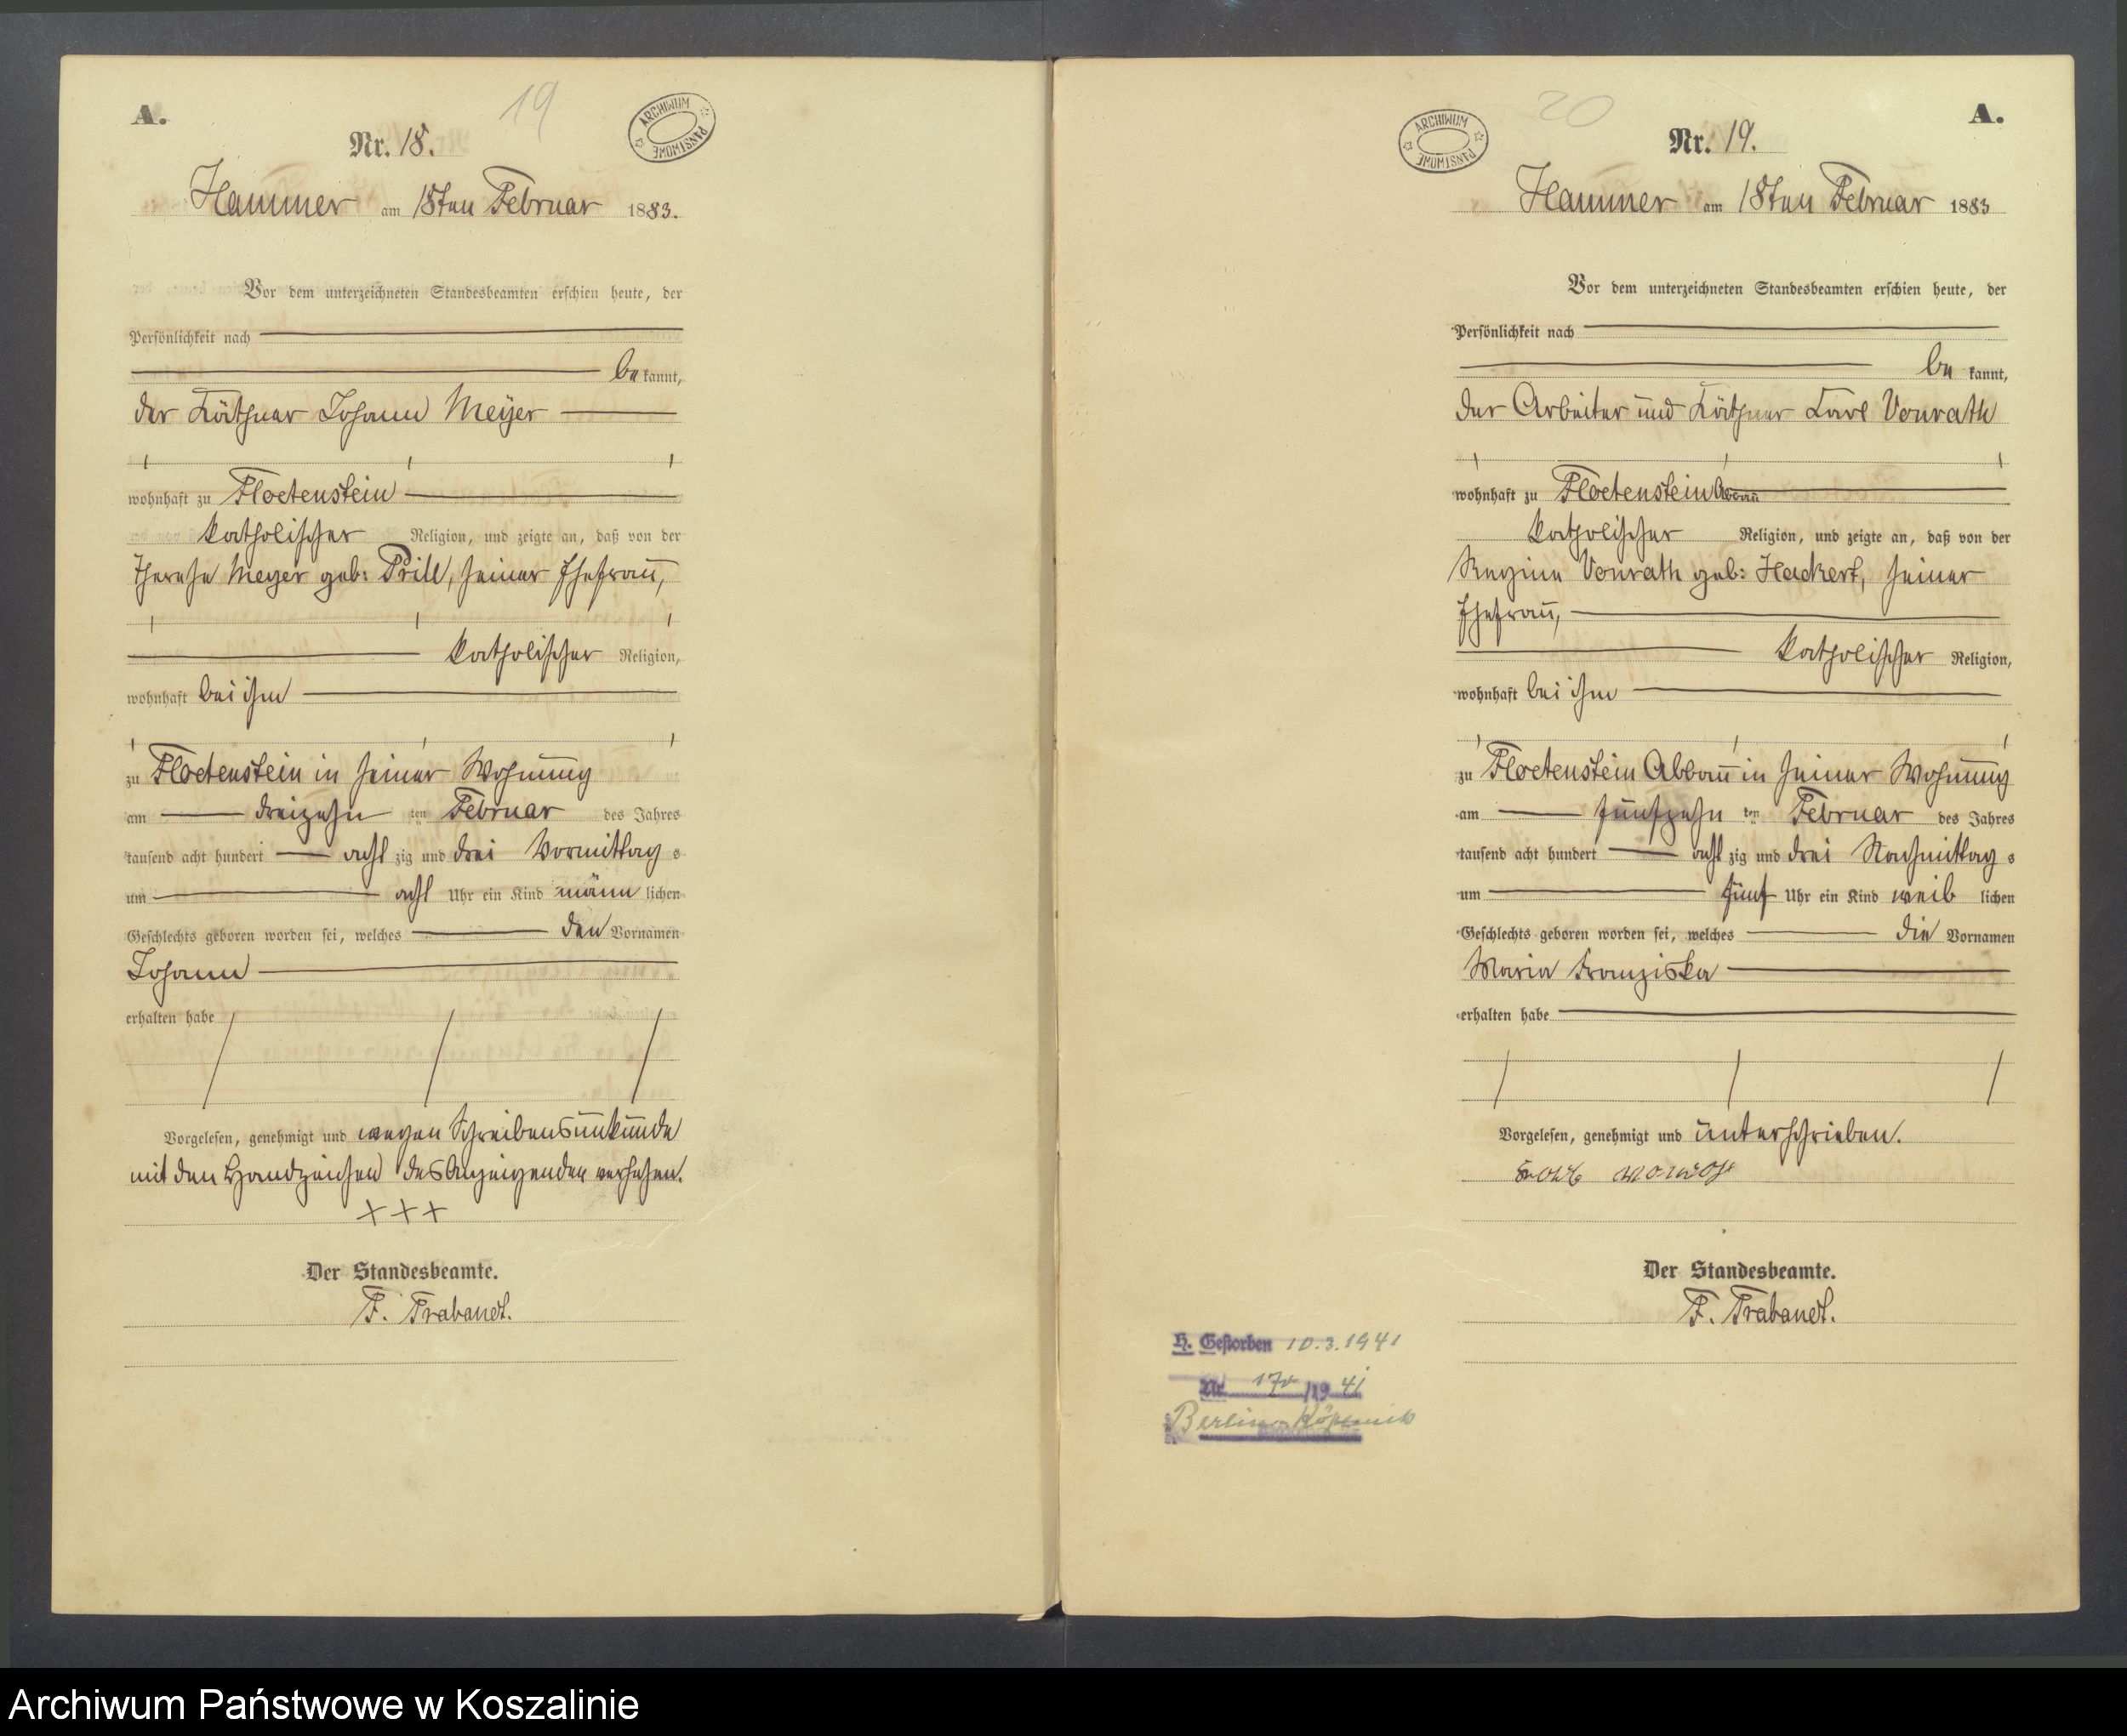 19
A.
ARCHIWUM PAŃSTWOWE
Nr. 18.
Hammer am 18ten Februar 1883.
Vor dem unterzeichneten Standesbeamten erschien heute, der
Persönlichkeit nach
be kannt,
der Käthner Johann Meÿer
wohnhaft zu Floetenstein
katholischer Religion, und zeigte an, daß von der
Therese Meyer geb: Prill, seiner Ehefrau,
katholischer Religion,
wohnhaft bei ihm
zu Floetenstein in seiner Wohnung
am dreizehn ten Februar des Jahres
tausend acht hundert acht zig und drei Vormittag s
um acht Uhr ein Kind männ lichen
Geschlechts geboren worden sei, welches den Vornamen
Johann
erhalten habe
Vorgelesen, genehmigt und wegen Schreibensunkunde
mit den Handzeichen des Anzeigenden versehen.
+++
Der Standesbeamte.
F. Trabandt.
20
A.
ARCHIWUM PAŃSTWOWE
Nr. 19.
Hammer am 18ten Februar 1883
Vor dem unterzeichneten Standesbeamten erschien heute, der
Persönlichkeit nach
be kannt,
der Arbeiter und Käthner Carl Vonrath
wohnhaft zu Floetenstein Abbau
katholischer Religion, und zeigte an, daß von der
Regine Vonrath geb: Hackert, seiner
Ehefrau,
katholischer Religion,
wohnhaft bei ihm
zu Floetenstein Abbau in seiner Wohnung
am fünfzehn ten Februar des Jahres
tausend acht hundert acht zig und drei Nachmittag s
um fünf Uhr ein Kind weib lichen
Geschlechts geboren worden sei, welches die Vornamen
Maria Franziska
erhalten habe
Vorgelesen, genehmigt und unterschrieben.
Der Standesbeamte.
F. Trabandt.
H. Gestorben 10.3.1941
Nr /19 41
Berlin-Köpenick
Archiwum Państwowe w Koszalinie